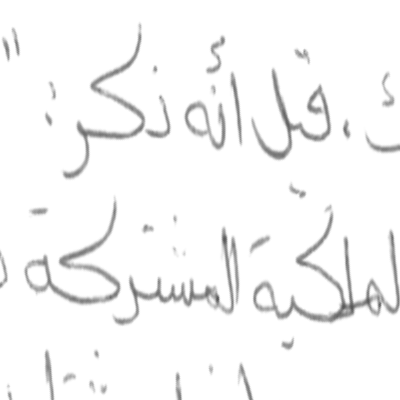 ، قل أنه ذكر: "
الملكية المشتركة